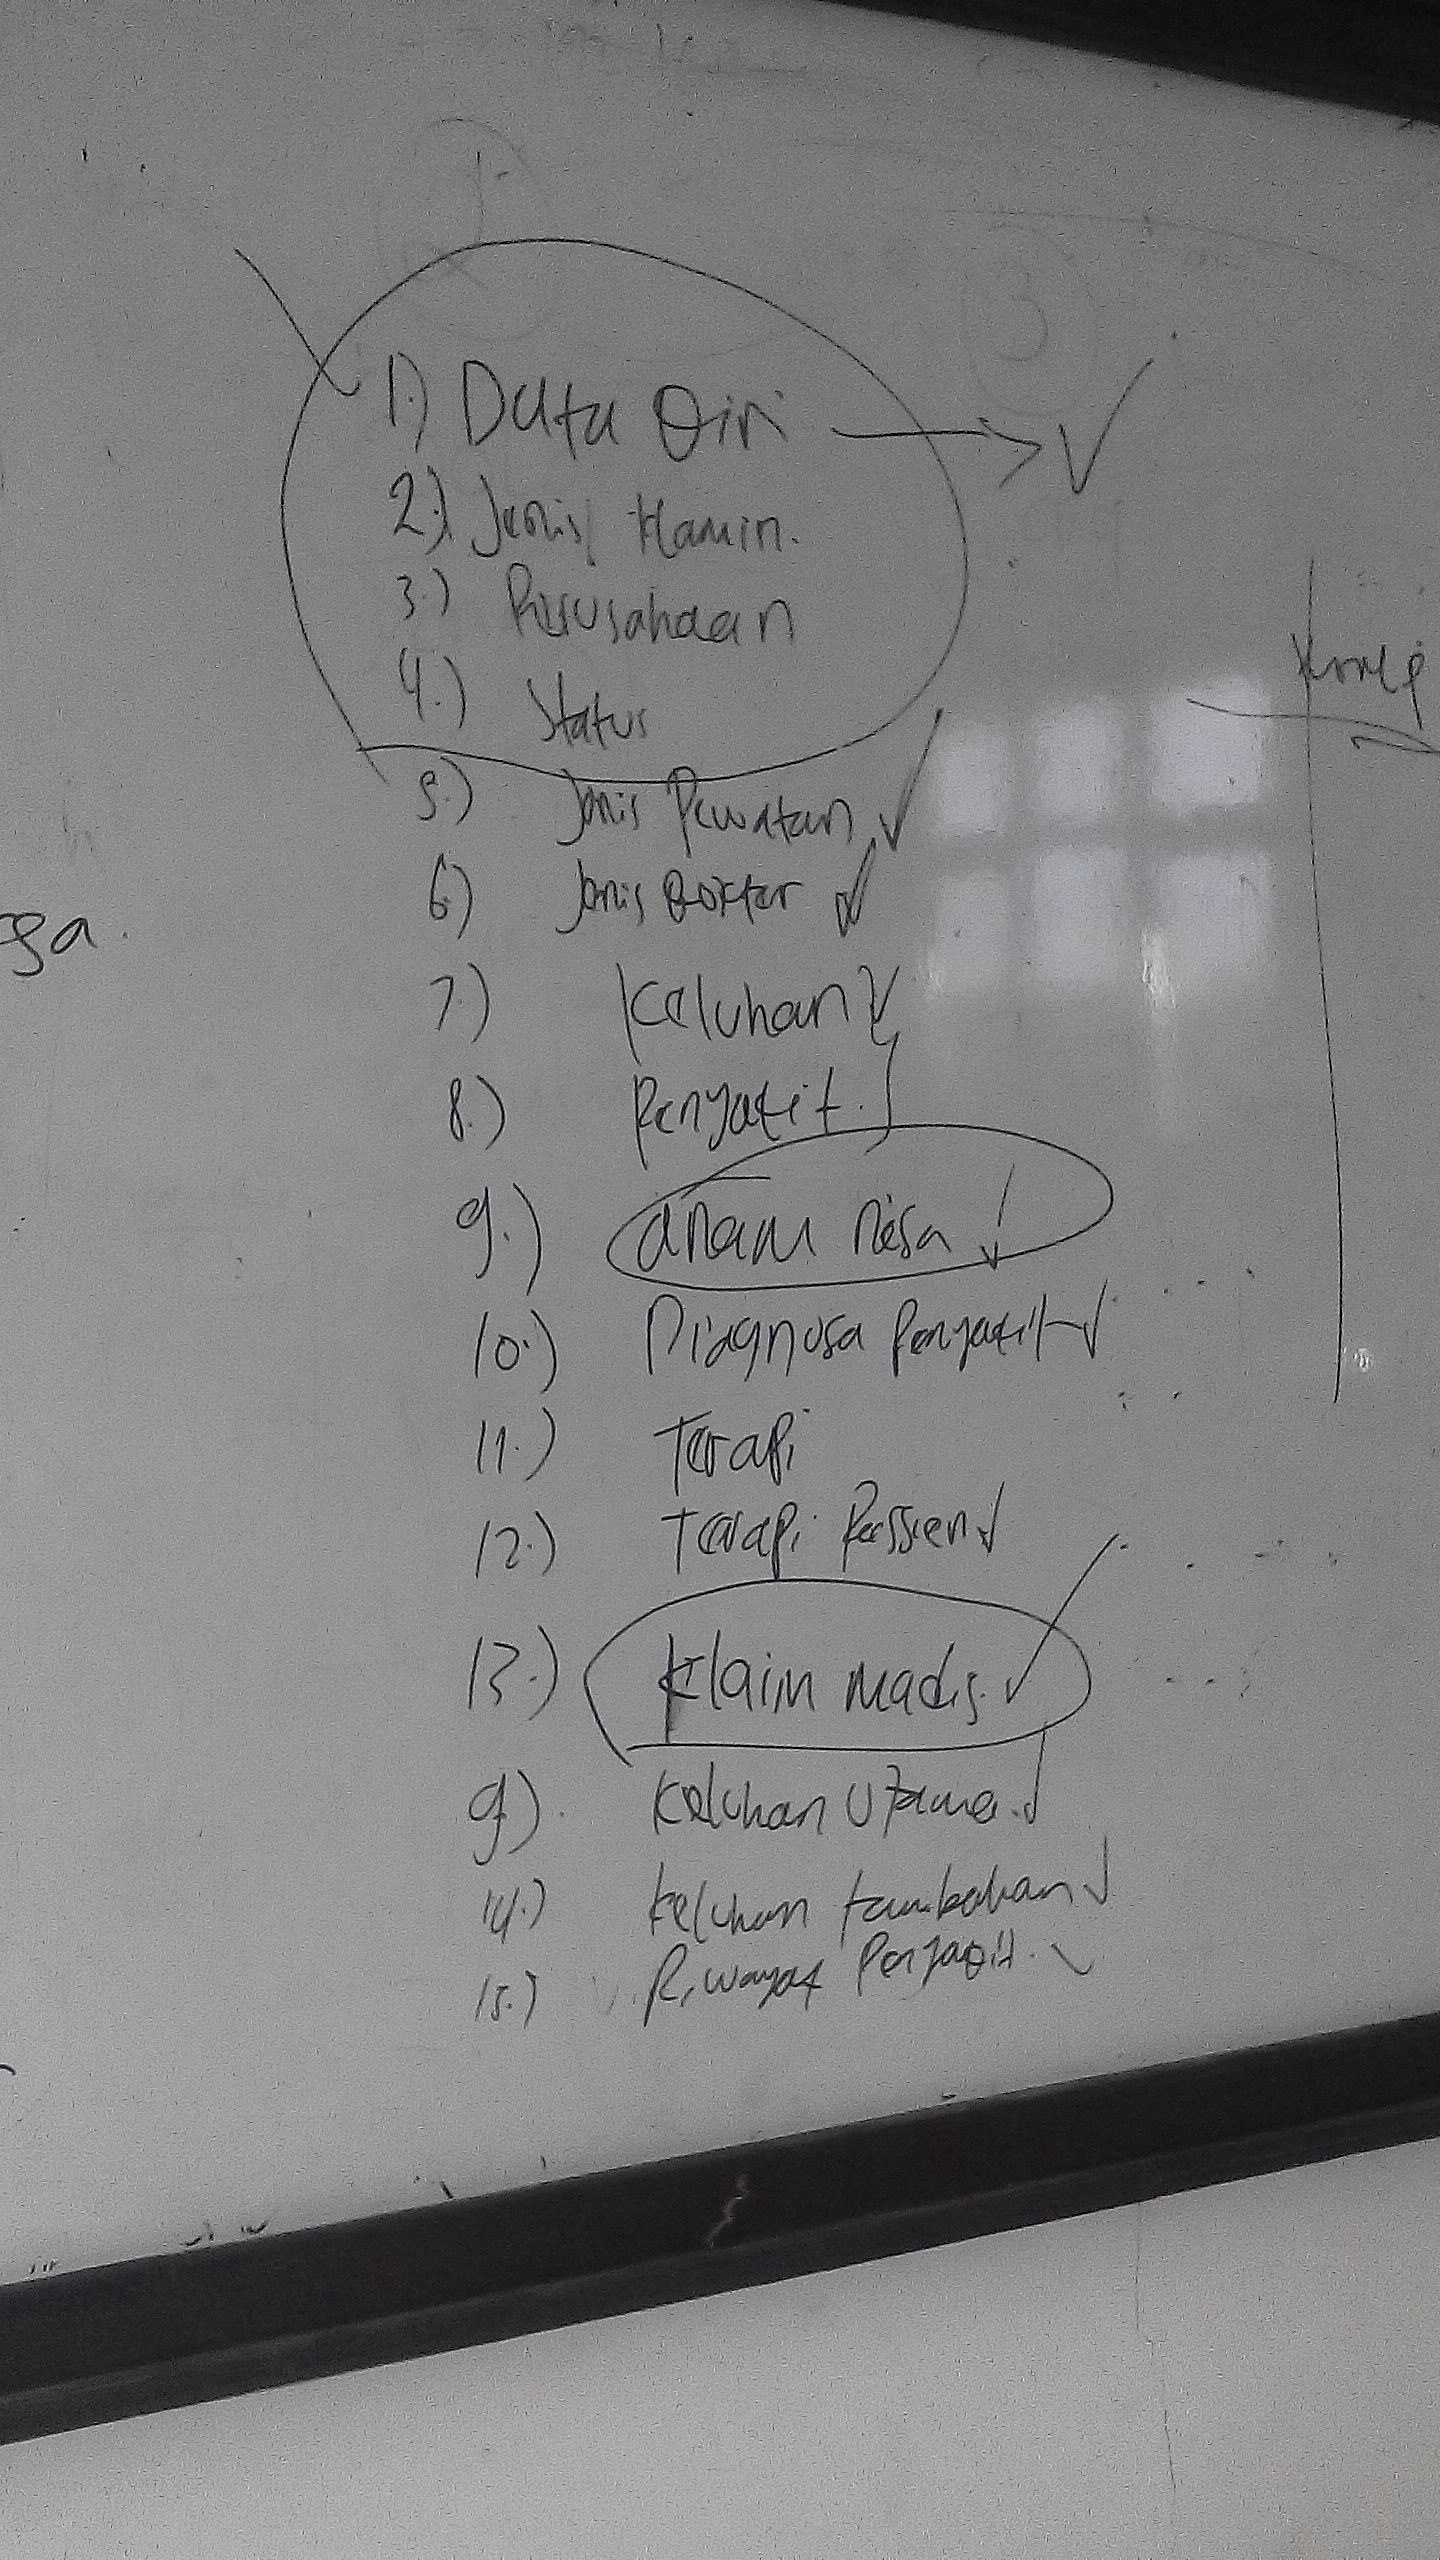 1.) Data Diri → ✓
2.) Jenis Klamin.
3.) Perusahaan
4.) Status
5.) Jenis Perwatan ✓
6.) Jenis Dokter ✓
7.) Keluhan ✓
8.) Penyakit.
9.) anam nesa ✓
10.) Diagnosa Penyakit ✓
11.) Terapi
12.) Terapi Passien ✓
13.) Klaim madis. ✓
9.) Keluhan Utama. ✓
14.) Keluhan tambahan ✓
15.) Riwayat Penyakit. ✓